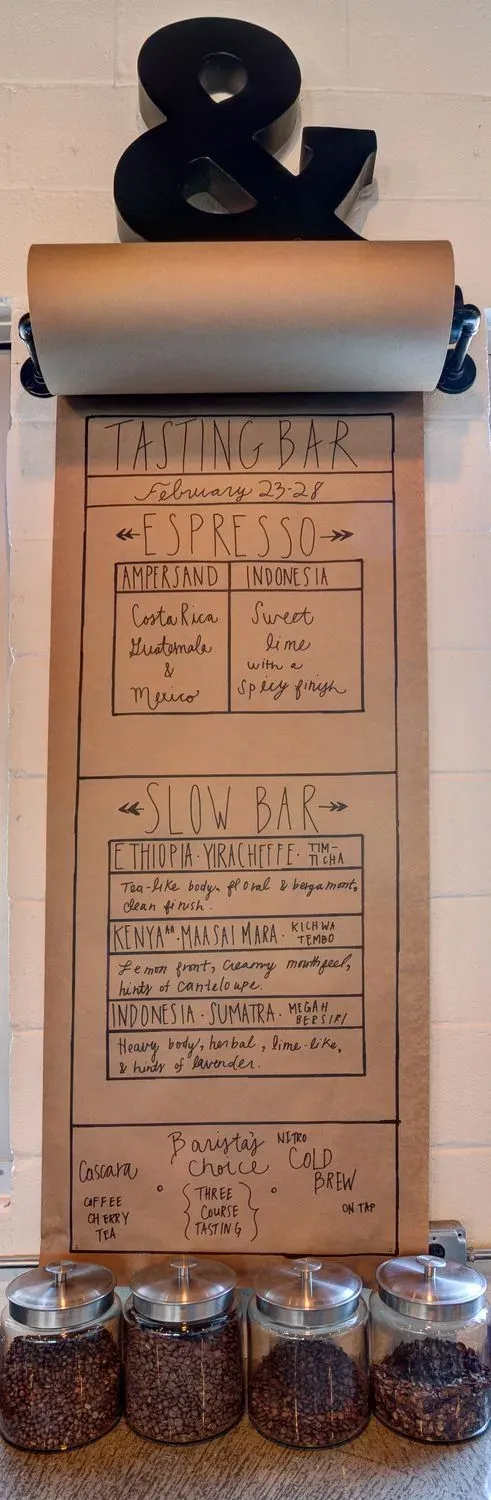 &
TASTING BAR
February 23-28
ESPRESSO
AMPERSAND
Costa Rica
Guatemala
&
Mexico
INDONESIA
Sweet
lime
with a
spicy finish
SLOW BAR
ETHIOPIA · YIRACHEFFE · TIM-
TICHA
Tea-like body, floral & bergamont,
clean finish.
KENYA AA · MAASAI MARA · KICHWA
TEMBO
Lemon front, creamy mouthfeel,
hints of canteloupe.
INDONESIA · SUMATRA · MEGAH
BERSIRI
Heavy body, herbal, lime-like,
& hints of lavender.
Cascara
COFFEE
CHERRY
TEA
Barista's
Choice
{THREE
COURSE
TASTING}
NITRO
COLD
BREW
ON TAP